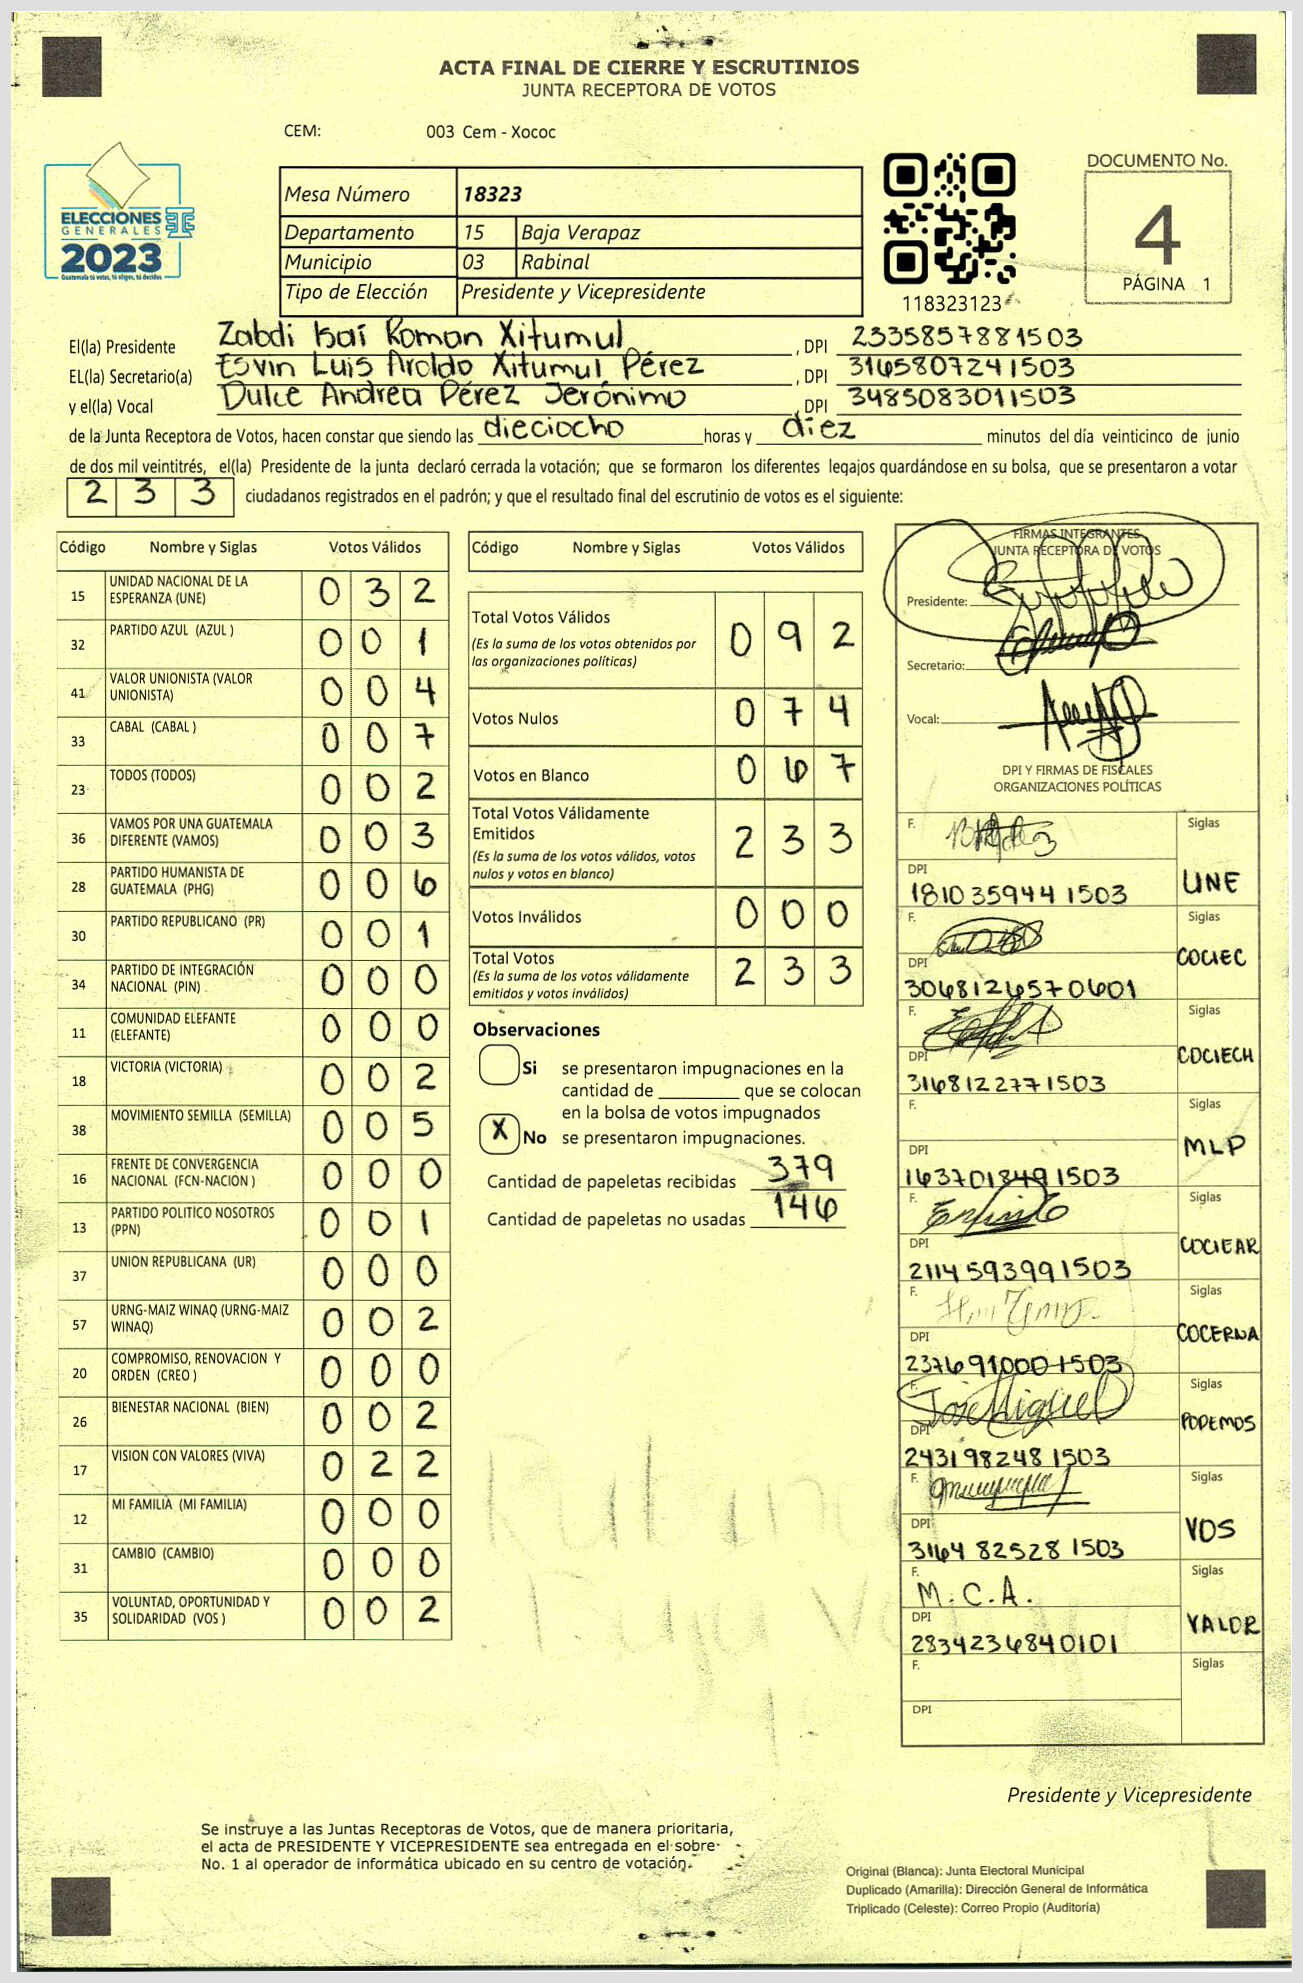 ACTA FINAL DE CIERRE Y ESCRUTINIOS
JUNTA RECEPTORA DE VOTOS
CEM: 003 Cem - Xococ
ELECCIONES
GENERALES
2023
Guatemala tú votas, tú eliges, tú decides
Mesa Número 18323
Departamento 15 Baja Verapaz
Municipio 03 Rabinal
Tipo de Elección Presidente y Vicepresidente
118323123
DOCUMENTO No.
4
PÁGINA 1
El(la) Presidente Zabdi Isaí Roman Xitumul, DPI 2335857881503
EL(la) Secretario(a) Esvin Luis Aroldo Xitumul Pérez, DPI 3165807241503
y el(la) Vocal Dulce Andrea Pérez Jerónimo, DPI 3485083011503
de la Junta Receptora de Votos, hacen constar que siendo las dieciocho horas y diez minutos del día veinticinco de junio
de dos mil veintitrés, el(la) Presidente de la junta declaró cerrada la votación; que se formaron los diferentes legajos guardándose en su bolsa, que se presentaron a votar
2 3 3 ciudadanos registrados en el padrón; y que el resultado final del escrutinio de votos es el siguiente:
Código Nombre y Siglas Votos Válidos
15 UNIDAD NACIONAL DE LA ESPERANZA (UNE) 0 3 2
32 PARTIDO AZUL (AZUL ) 0 0 1
41 VALOR UNIONISTA (VALOR UNIONISTA) 0 0 4
33 CABAL (CABAL ) 0 0 7
23 TODOS (TODOS) 0 0 2
36 VAMOS POR UNA GUATEMALA DIFERENTE (VAMOS) 0 0 3
28 PARTIDO HUMANISTA DE GUATEMALA (PHG) 0 0 6
30 PARTIDO REPUBLICANO (PR) 0 0 1
34 PARTIDO DE INTEGRACIÓN NACIONAL (PIN) 0 0 0
11 COMUNIDAD ELEFANTE (ELEFANTE) 0 0 0
18 VICTORIA (VICTORIA) 0 0 2
38 MOVIMIENTO SEMILLA (SEMILLA) 0 0 5
16 FRENTE DE CONVERGENCIA NACIONAL (FCN-NACION ) 0 0 0
13 PARTIDO POLITICO NOSOTROS (PPN) 0 0 1
37 UNION REPUBLICANA (UR) 0 0 0
57 URNG-MAIZ WINAQ (URNG-MAIZ WINAQ) 0 0 2
20 COMPROMISO, RENOVACION Y ORDEN (CREO ) 0 0 0
26 BIENESTAR NACIONAL (BIEN) 0 0 2
17 VISION CON VALORES (VIVA) 0 2 2
12 MI FAMILIA (MI FAMILIA) 0 0 0
31 CAMBIO (CAMBIO) 0 0 0
35 VOLUNTAD, OPORTUNIDAD Y SOLIDARIDAD (VOS ) 0 0 2
Código Nombre y Siglas Votos Válidos
Total Votos Válidos 0 9 2
(Es la suma de los votos obtenidos por
las organizaciones políticas)
Votos Nulos 0 7 4
Votos en Blanco 0 6 7
Total Votos Válidamente
Emitidos 2 3 3
(Es la suma de los votos válidos, votos
nulos y votos en blanco)
Votos Inválidos 0 0 0
Total Votos 2 3 3
(Es la suma de los votos válidamente
emitidos y votos inválidos)
Observaciones
Si se presentaron impugnaciones en la
cantidad de ________ que se colocan
en la bolsa de votos impugnados
X No se presentaron impugnaciones.
Cantidad de papeletas recibidas 379
Cantidad de papeletas no usadas 146
FIRMAS INTEGRANTES
JUNTA RECEPTORA DE VOTOS
Presidente:
Secretario:
Vocal:
DPI Y FIRMAS DE FISCALES
ORGANIZACIONES POLÍTICAS
F. Siglas
DPI 1810359441503 UNE
F. Siglas
DPI 3068126570601 COCIEC
F. Siglas
DPI 3168122771503 COCIECH
F. Siglas
DPI 1637018491503 MLP
F. Siglas
DPI 2114593991503 COCIEAR
F. Siglas
DPI 2376910001503 COCERNA
F. José Miguel Siglas
DPI 2431982481503 PODEMOS
F. Siglas
DPI 3164825281503 VOS
F. M.C.A. Siglas
DPI 2834236840101 VALOR
F. Siglas
DPI
Presidente y Vicepresidente
Se instruye a las Juntas Receptoras de Votos, que de manera prioritaria,
el acta de PRESIDENTE Y VICEPRESIDENTE sea entregada en el sobre
No. 1 al operador de informática ubicado en su centro de votación.
Original (Blanca): Junta Electoral Municipal
Duplicado (Amarilla): Dirección General de Informática
Triplicado (Celeste): Correo Propio (Auditoría)